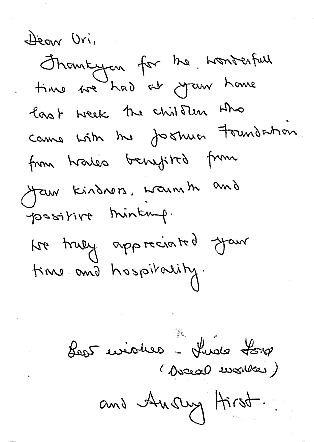 Dear Uri,
Thankyou for the wonderfull
time we had at your home
last week the children who
came with the Joshua Foundation
from Wales benefited from
your kindness, warmth and
positive thinking.
We truly appreciated your
time and hospitality.
Best wishes - Linda
(Social worker)
and Hirst.